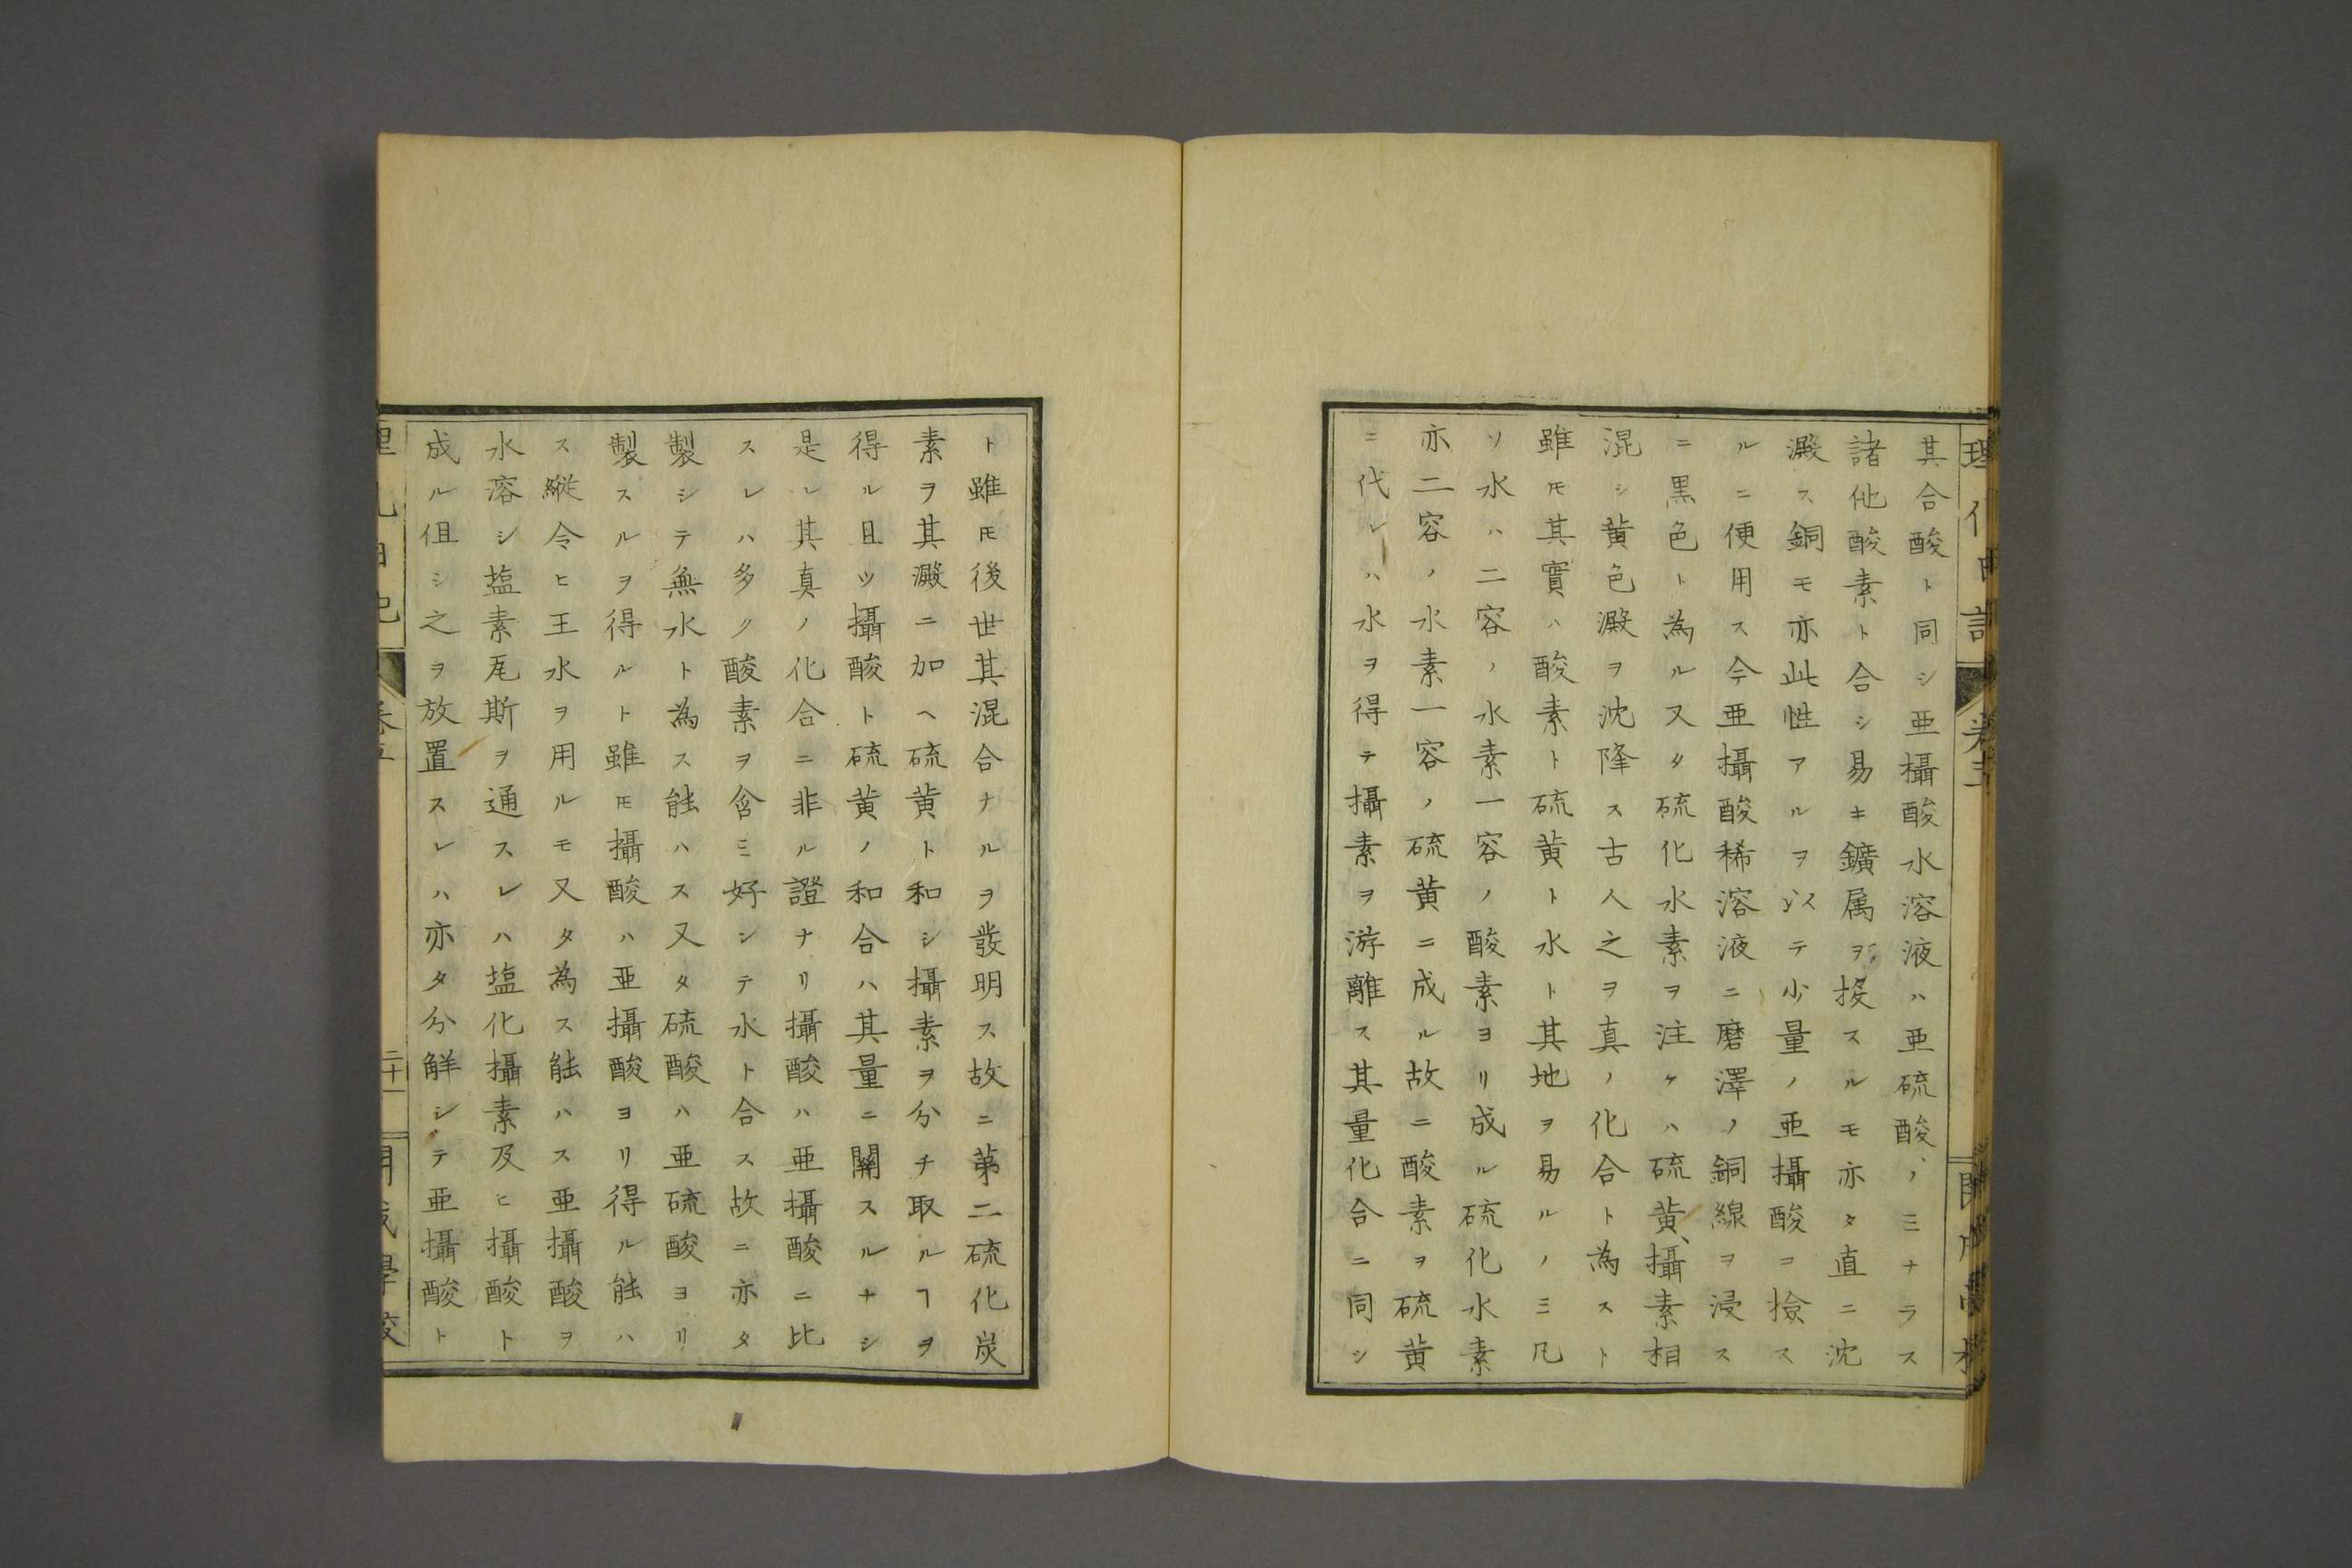 其合酸ト同シ亜攝酸水溶液ハ亜硫酸ノミナラス
諸他酸素ト合シ易キ鑛属ヲ投スルモ亦タ直ニ沈
澱ス銅モ亦此性アルヲ以テ少量ノ亜攝酸コ撿ス
ルニ便用ス今亜攝酸稀溶液ニ磨澤ノ銅線ヲ浸ス
ニ黒色ト為ル又タ硫化水素ヲ注ケハ硫黄攝素相
混シ黄色澱ヲ沈降ス古人之ヲ真ノ化合ト為スト
雖𪜈其實ハ酸素ト硫黄ト水ト其地ヲ易ルノミ凡
ソ水ハ二容ノ水素一容ノ酸素ヨリ成ル硫化水素
亦二容ノ水素一容ノ硫黄ニ成ル故ニ酸素ヲ硫黄
ニ代レハ水ヲ得テ攝素ヲ游離ス其量化合ニ同シ
ト雖𪜈後世其混合ナルヲ發明ス故ニ第二硫化炭
素ヲ其澱ニ加ヘ硫黄ト和シ攝素ヲ分チ取ルヿヲ
得ル且ツ攝酸ト硫黄ノ和合ハ其量ニ關スルナシ
是レ其真ノ化合ニ非ル證ナリ攝酸ハ亜攝酸ニ比
スレハ多ク酸素ヲ含ミ好シテ水ト合ス故ニ亦タ
製シテ無水ト為ス能ハス又タ硫酸ハ亜硫酸ヨリ
製スルヲ得ルト雖𪜈攝酸ハ亜攝酸ヨリ得ル能ハ
ス縦令ヒ王水ヲ用ルモ又タ為ス能ハス亜攝酸ヲ
水溶シ塩素瓦斯ヲ通スレハ塩化攝素及ヒ攝酸ト
成ル但シ之ヲ放置スレハ亦タ分解シテ亜攝酸ト
二十一